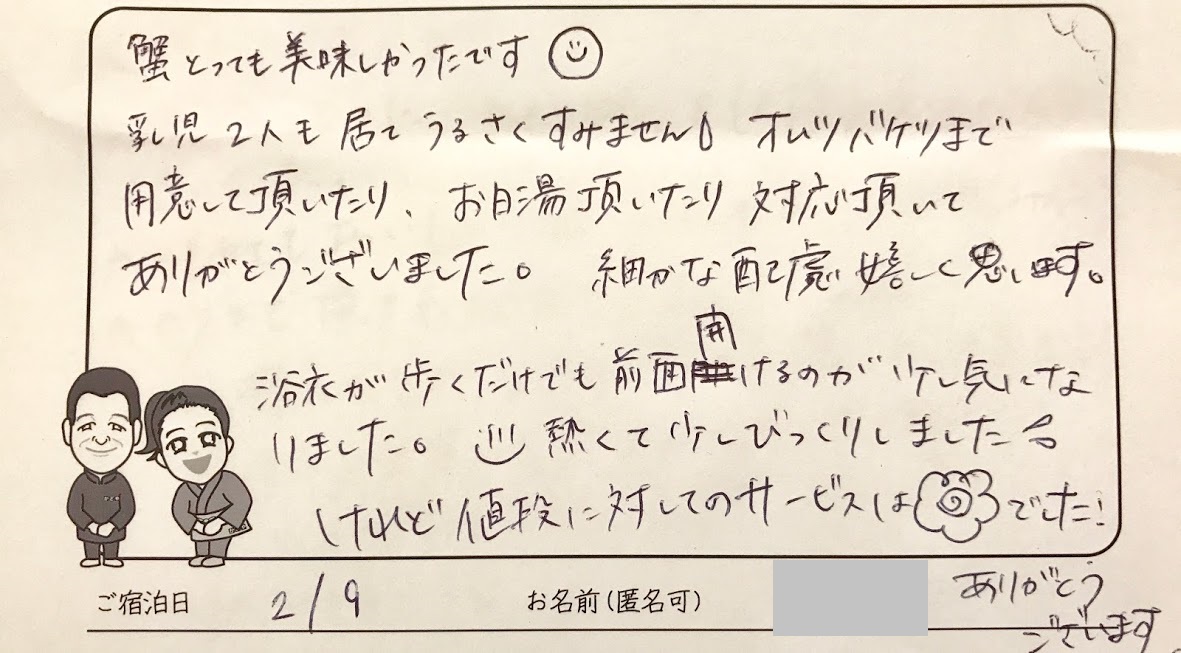 蟹とっても美味しかったです
乳児2人も居てうるさくすみません オムツバケツまで
用意して頂いたり、お白湯頂いたり対応頂いて
ありがとうございました。 細かな配慮嬉しく思います。
浴衣が歩くだけでも前囲開けるのが少し気にな
りました。 ♨熱くて少しびっくりしました
けれど値段に対してのサービスはでした!
ご宿泊日 2/9 お名前(匿名可) ありがとう
ございます